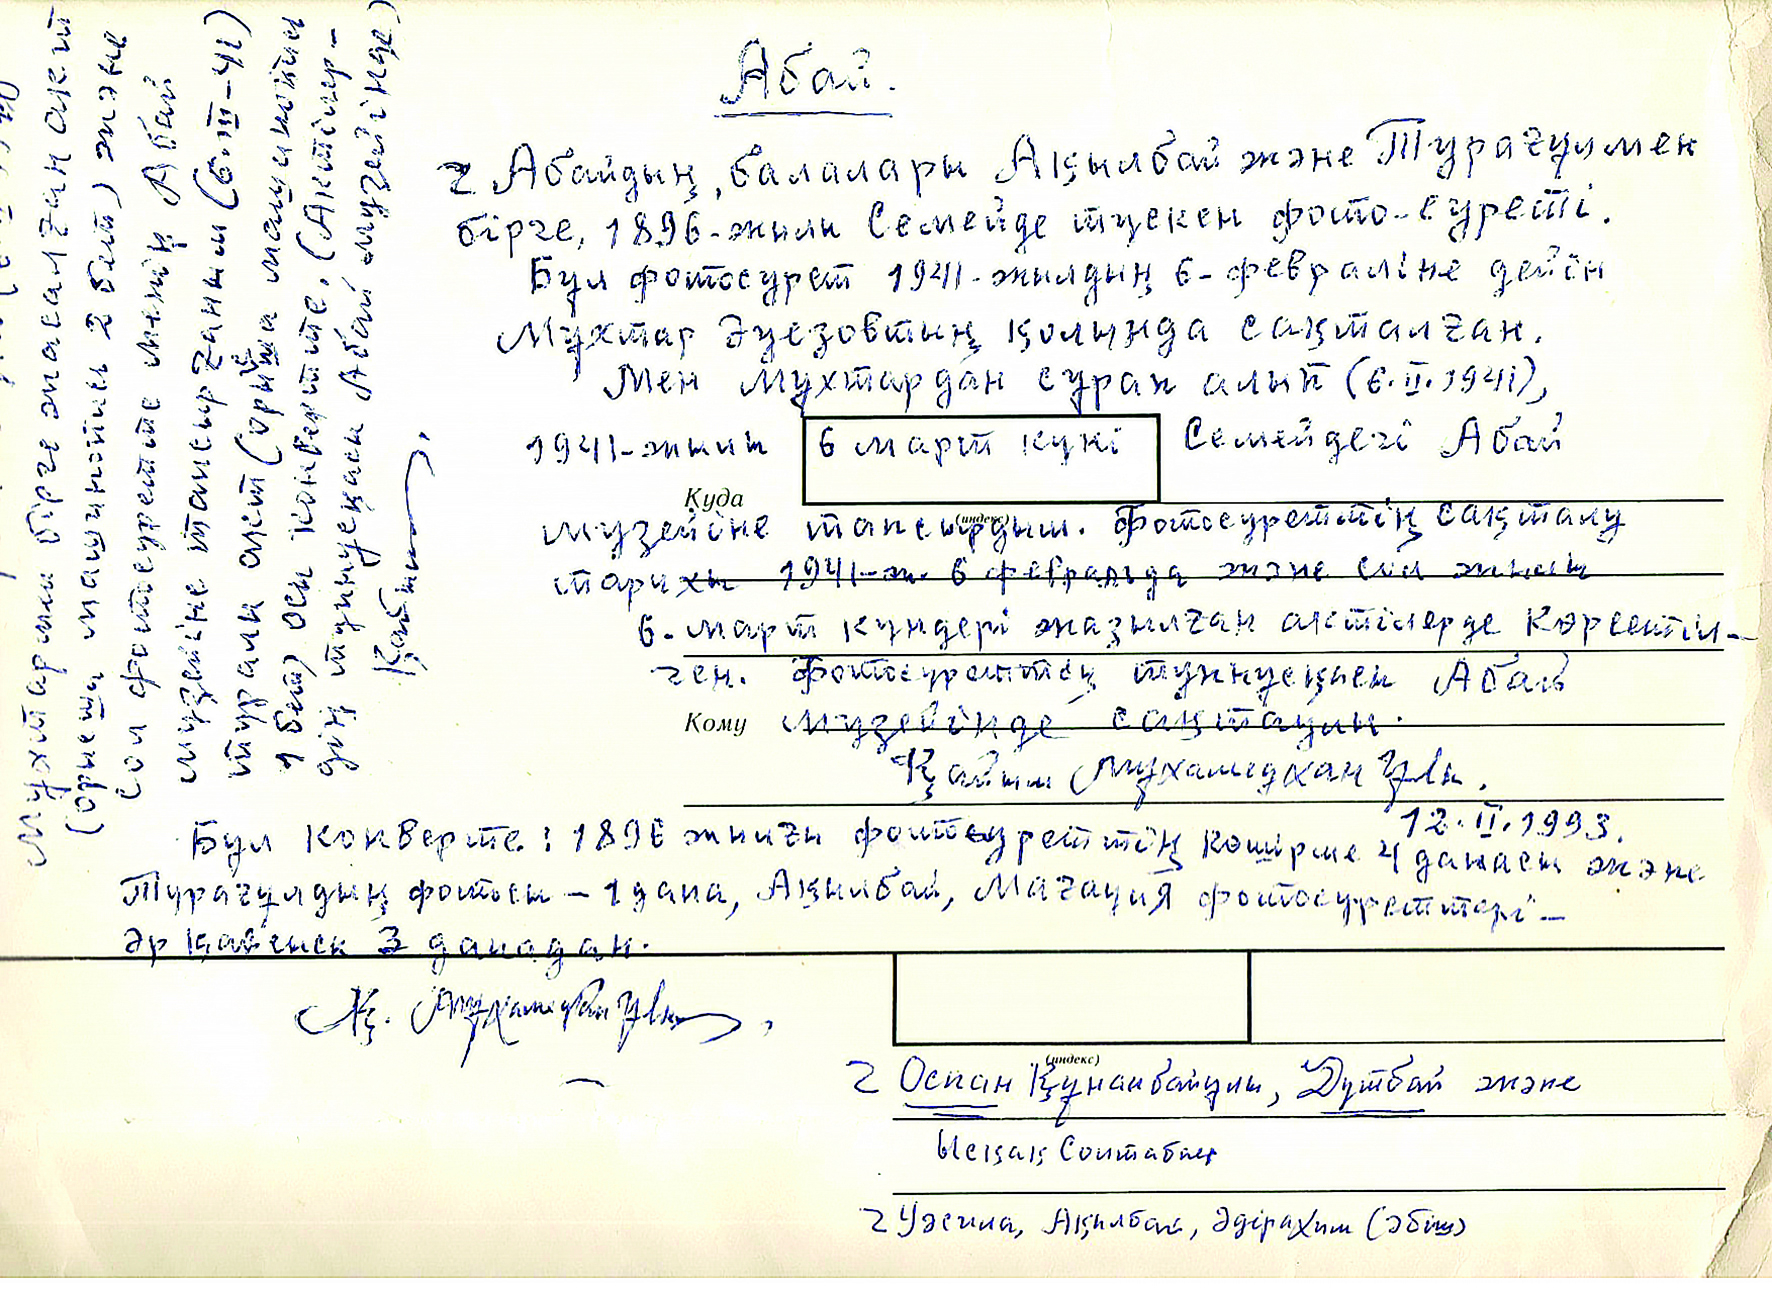 Абай.
Абайдың, балалары Ақылбай және Турағулмен
бірге, 1896-жылы Семейде түскен фото-суреті.
Бұл фотосурет 1941-жылдың 6-февраліне дейін
Мұхтар Әуезовтың қолында сақталған.
Мен Мұхтардан сұрап алып (6.II.1941),
1941-жылы 6 март күні Семейдегі Абай
Куда
(индекс)
музейіне тапсырдым. Фотосуреттің сақталу
тарихы 1941-ж. 6 февральда және сол жылы
6-март күндері жазылған актілерде көрсетіл-
ген. Фотосуреттің түпнұсқасы Абай
Кому
музейінде сақтаулы.
Қайым Мұхамедханұлы.
12.II.1993.
Бұл конверте: 1896 жылғы фотосуреттің көшірме 4 данасы және
Тұрағұлдың фотосы – 1 дана, Ақылбай, Мағауия фотосуреттері –
әр қайсысы 3 данадан.
Қ. Мұхамедханұлы,
(индекс)
Оспан Құнанбайұлы, Дутбай және
Ысқақ
Уәсила, Ақылбай, Әдірахим (Әбіш)
Мұхтармен бірге жасалған акт
(орысша машинопись 2 бет) және
сол фотосуретте менің Абай
музейіне тапсырғаным (6.III-41)
туралы акт (орысша машинопись
1 бет) осы конвертте. (Актілер-
дің түпнұсқасы Абай музейінде)
Қайым